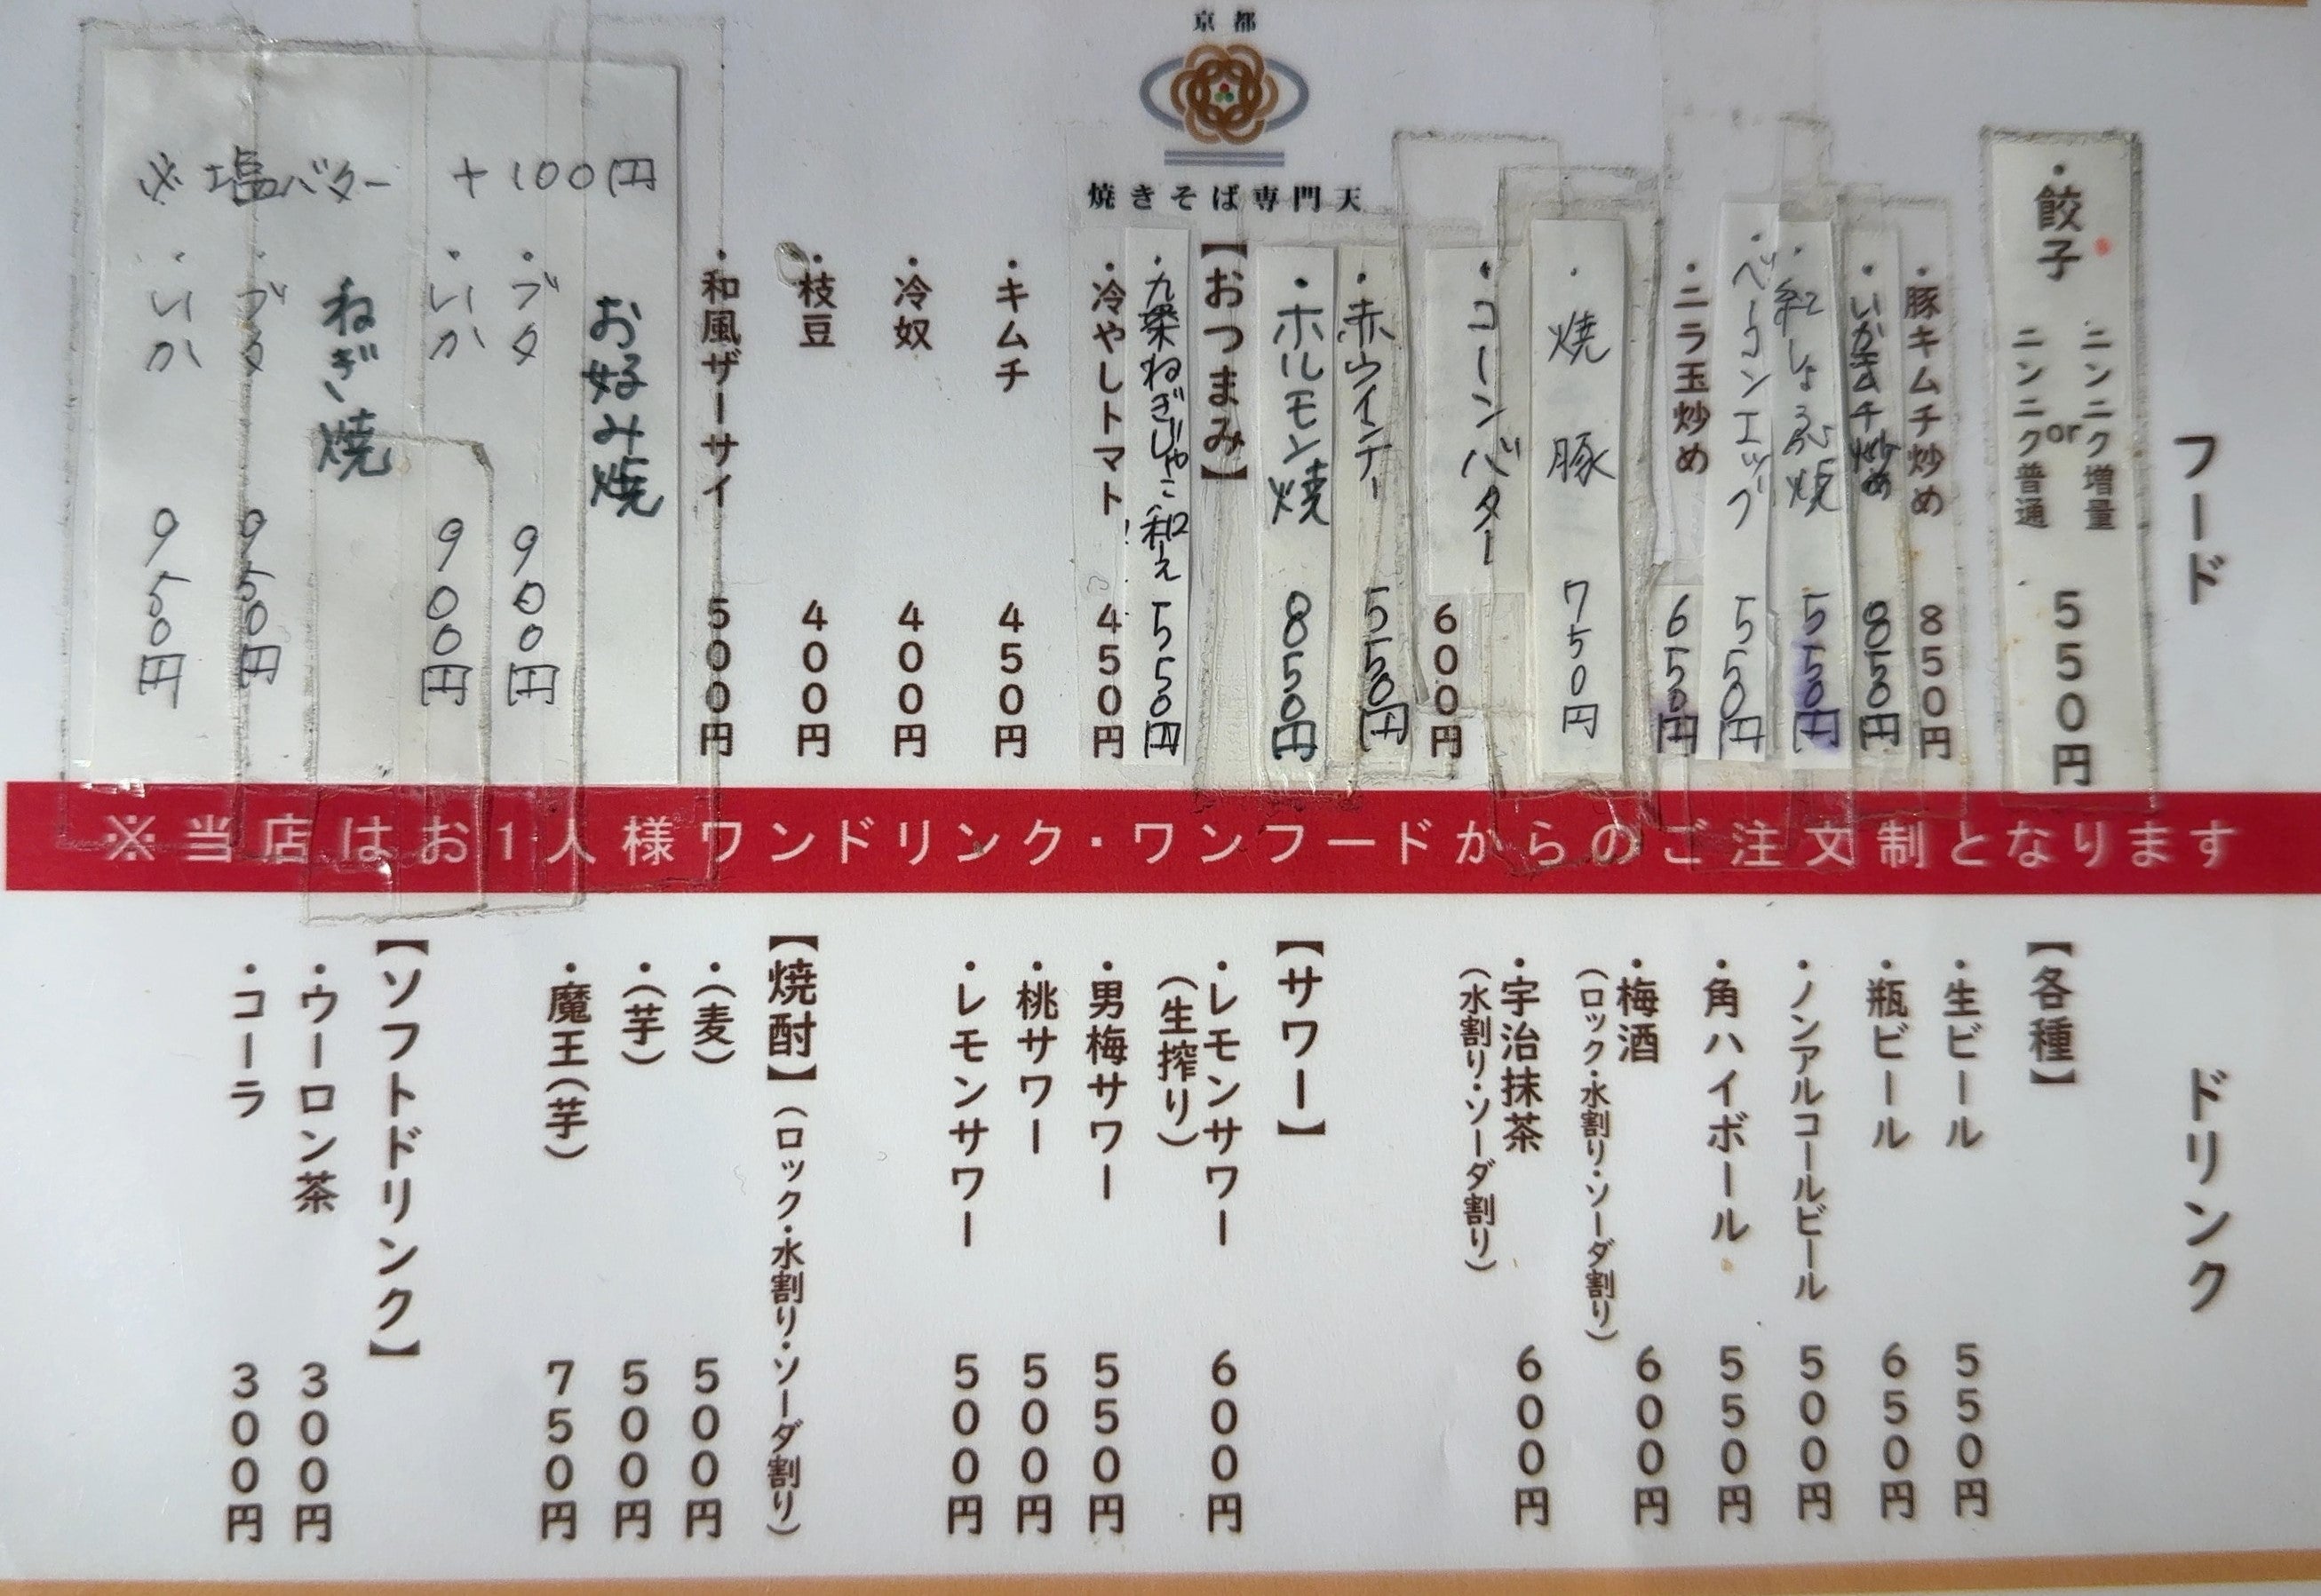 京都
焼きそば専門天
フード
・餃子
ニンニク増量
or
ニンニク普通
550円
・豚キムチ炒め 850円
・いかキムチ炒め 850円
・紅しょうが焼 550円
・ベーコンエッグ 550円
・ニラ玉炒め 650円
・焼豚 750円
・コーンバター 600円
・赤ウインナー 550円
・ホルモン焼 850円
【おつまみ】
・九条ねぎじゃこ和え 550円
・冷やしトマト 450円
・キムチ 450円
・冷奴 400円
・枝豆 400円
・和風ザーサイ 500円
お好み焼
・ブタ 900円
・いか 900円
ねぎ焼
・ブタ 950円
・いか 950円
※塩バター +100円
※当店はお1人様ワンドリンク・ワンフードからのご注文制となります
ドリンク
【各種】
・生ビール 550円
・瓶ビール 650円
・ノンアルコールビール 500円
・角ハイボール 550円
・梅酒 600円
（ロック・水割り・ソーダ割り）
・宇治抹茶 600円
（水割り・ソーダ割り）
【サワー】
・レモンサワー 600円
（生搾り）
・男梅サワー 550円
・桃サワー 500円
・レモンサワー 500円
【焼酎】（ロック・水割り・ソーダ割り）
・（麦） 500円
・（芋） 500円
・魔王（芋） 750円
【ソフトドリンク】
・ウーロン茶 300円
・コーラ 300円